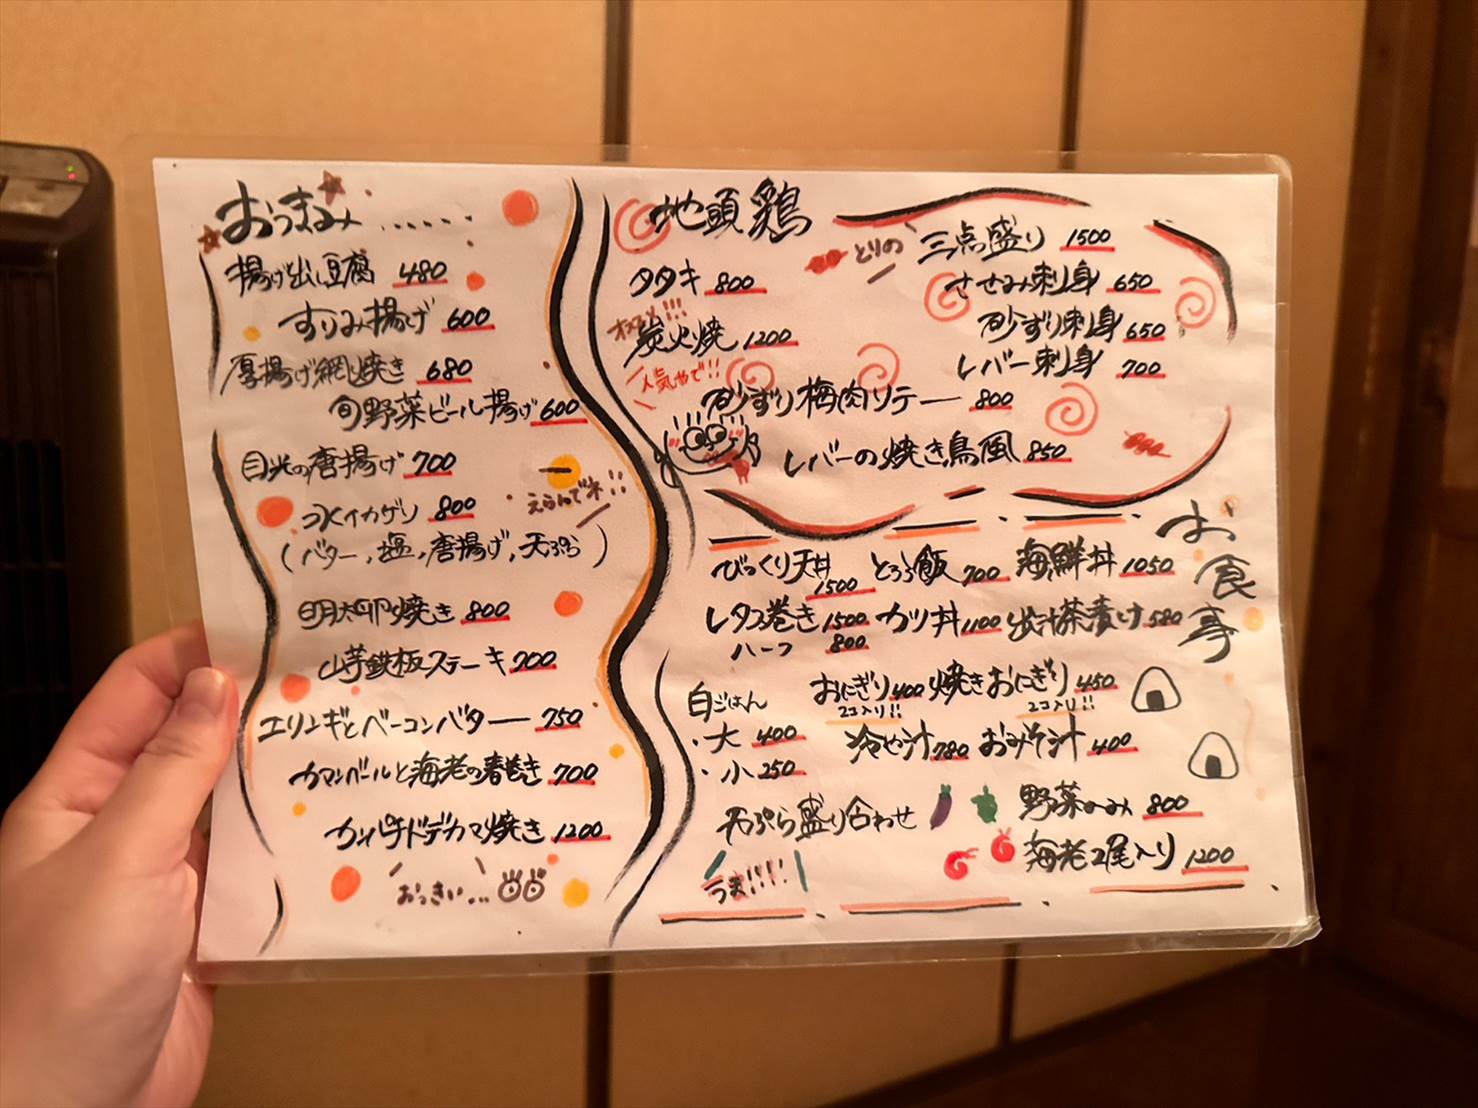 おつまみ......
揚げ出し豆腐 480
すりみ揚げ 600
厚揚げ網焼き 680
旬野菜ビール揚げ 600
目光の唐揚げ 700
えらんでネ!!
水イカゲソ 800
(バター,塩,唐揚げ,天ぷら)
明太卵焼き 800
山芋鉄板ステーキ 700
エリンギとベーコンバター 750
カマンベールと海老の春巻き 700
カンパチドデカマ焼き 1200
おっきい...
地頭鶏
タタキ 800
オススメ!!!
炭火焼 1200
人気やで!!
砂ずり梅肉ソテー 800
レバーの焼き鳥風 850
とりの
三点盛り 1500
ささみ刺身 650
砂ずり刺身 650
レバー刺身 700
お食事
びっくり天丼 1500 とろろ飯 700 海鮮丼 1050
レタス巻き 1500 カツ丼 1100 出汁茶漬け 580
ハーフ 800
白ごはん
・大 400
・小 250
おにぎり 400 焼きおにぎり 450
2コ入り!! 2コ入り!!
冷や汁 780 おみそ汁 400
天ぷら盛り合わせ
野菜のみ 800
海老2尾入り 1200
うま!!!!